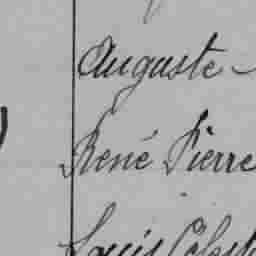 Auguste
René Pierre
Louis Celest